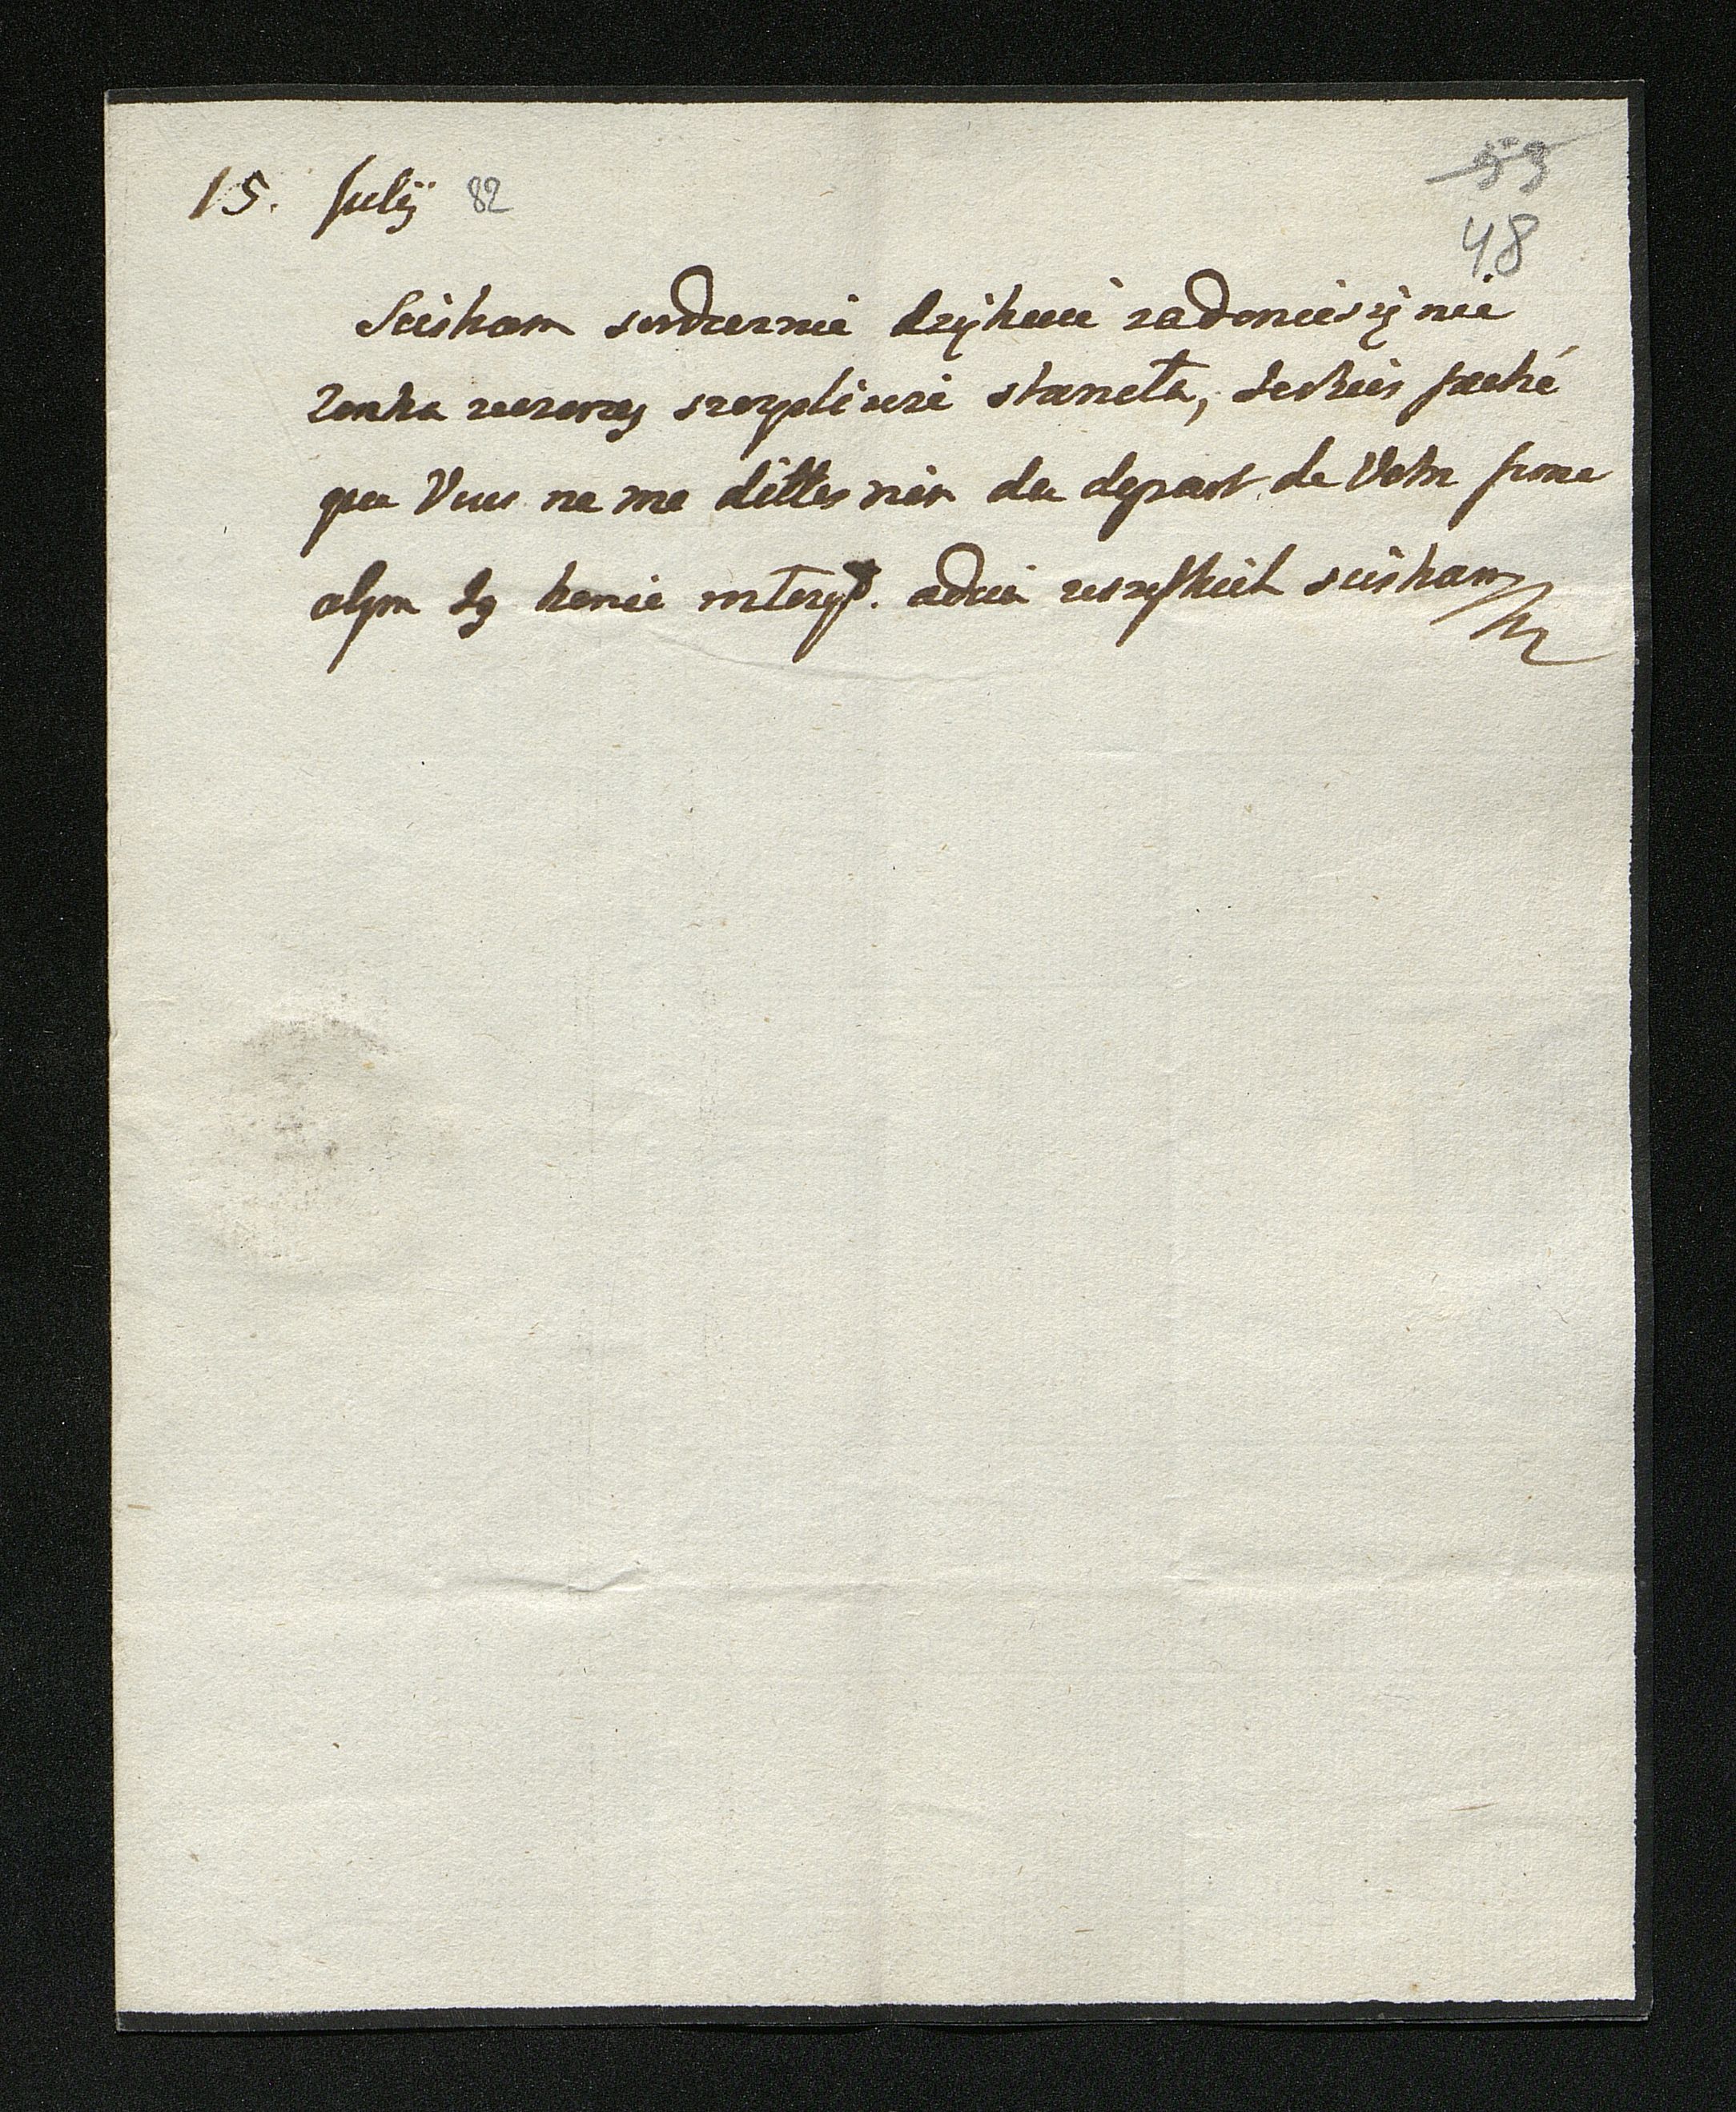 15. Julij 82
53
48
Sciskam serdecznie dziękuie za doniesięnie
Zonka wczoray szczęsliwie stanęła, Je suis faché
que Vous ne me dittes rien du depart de Votre frere
a tym są konie adieu wszystkich sciskam